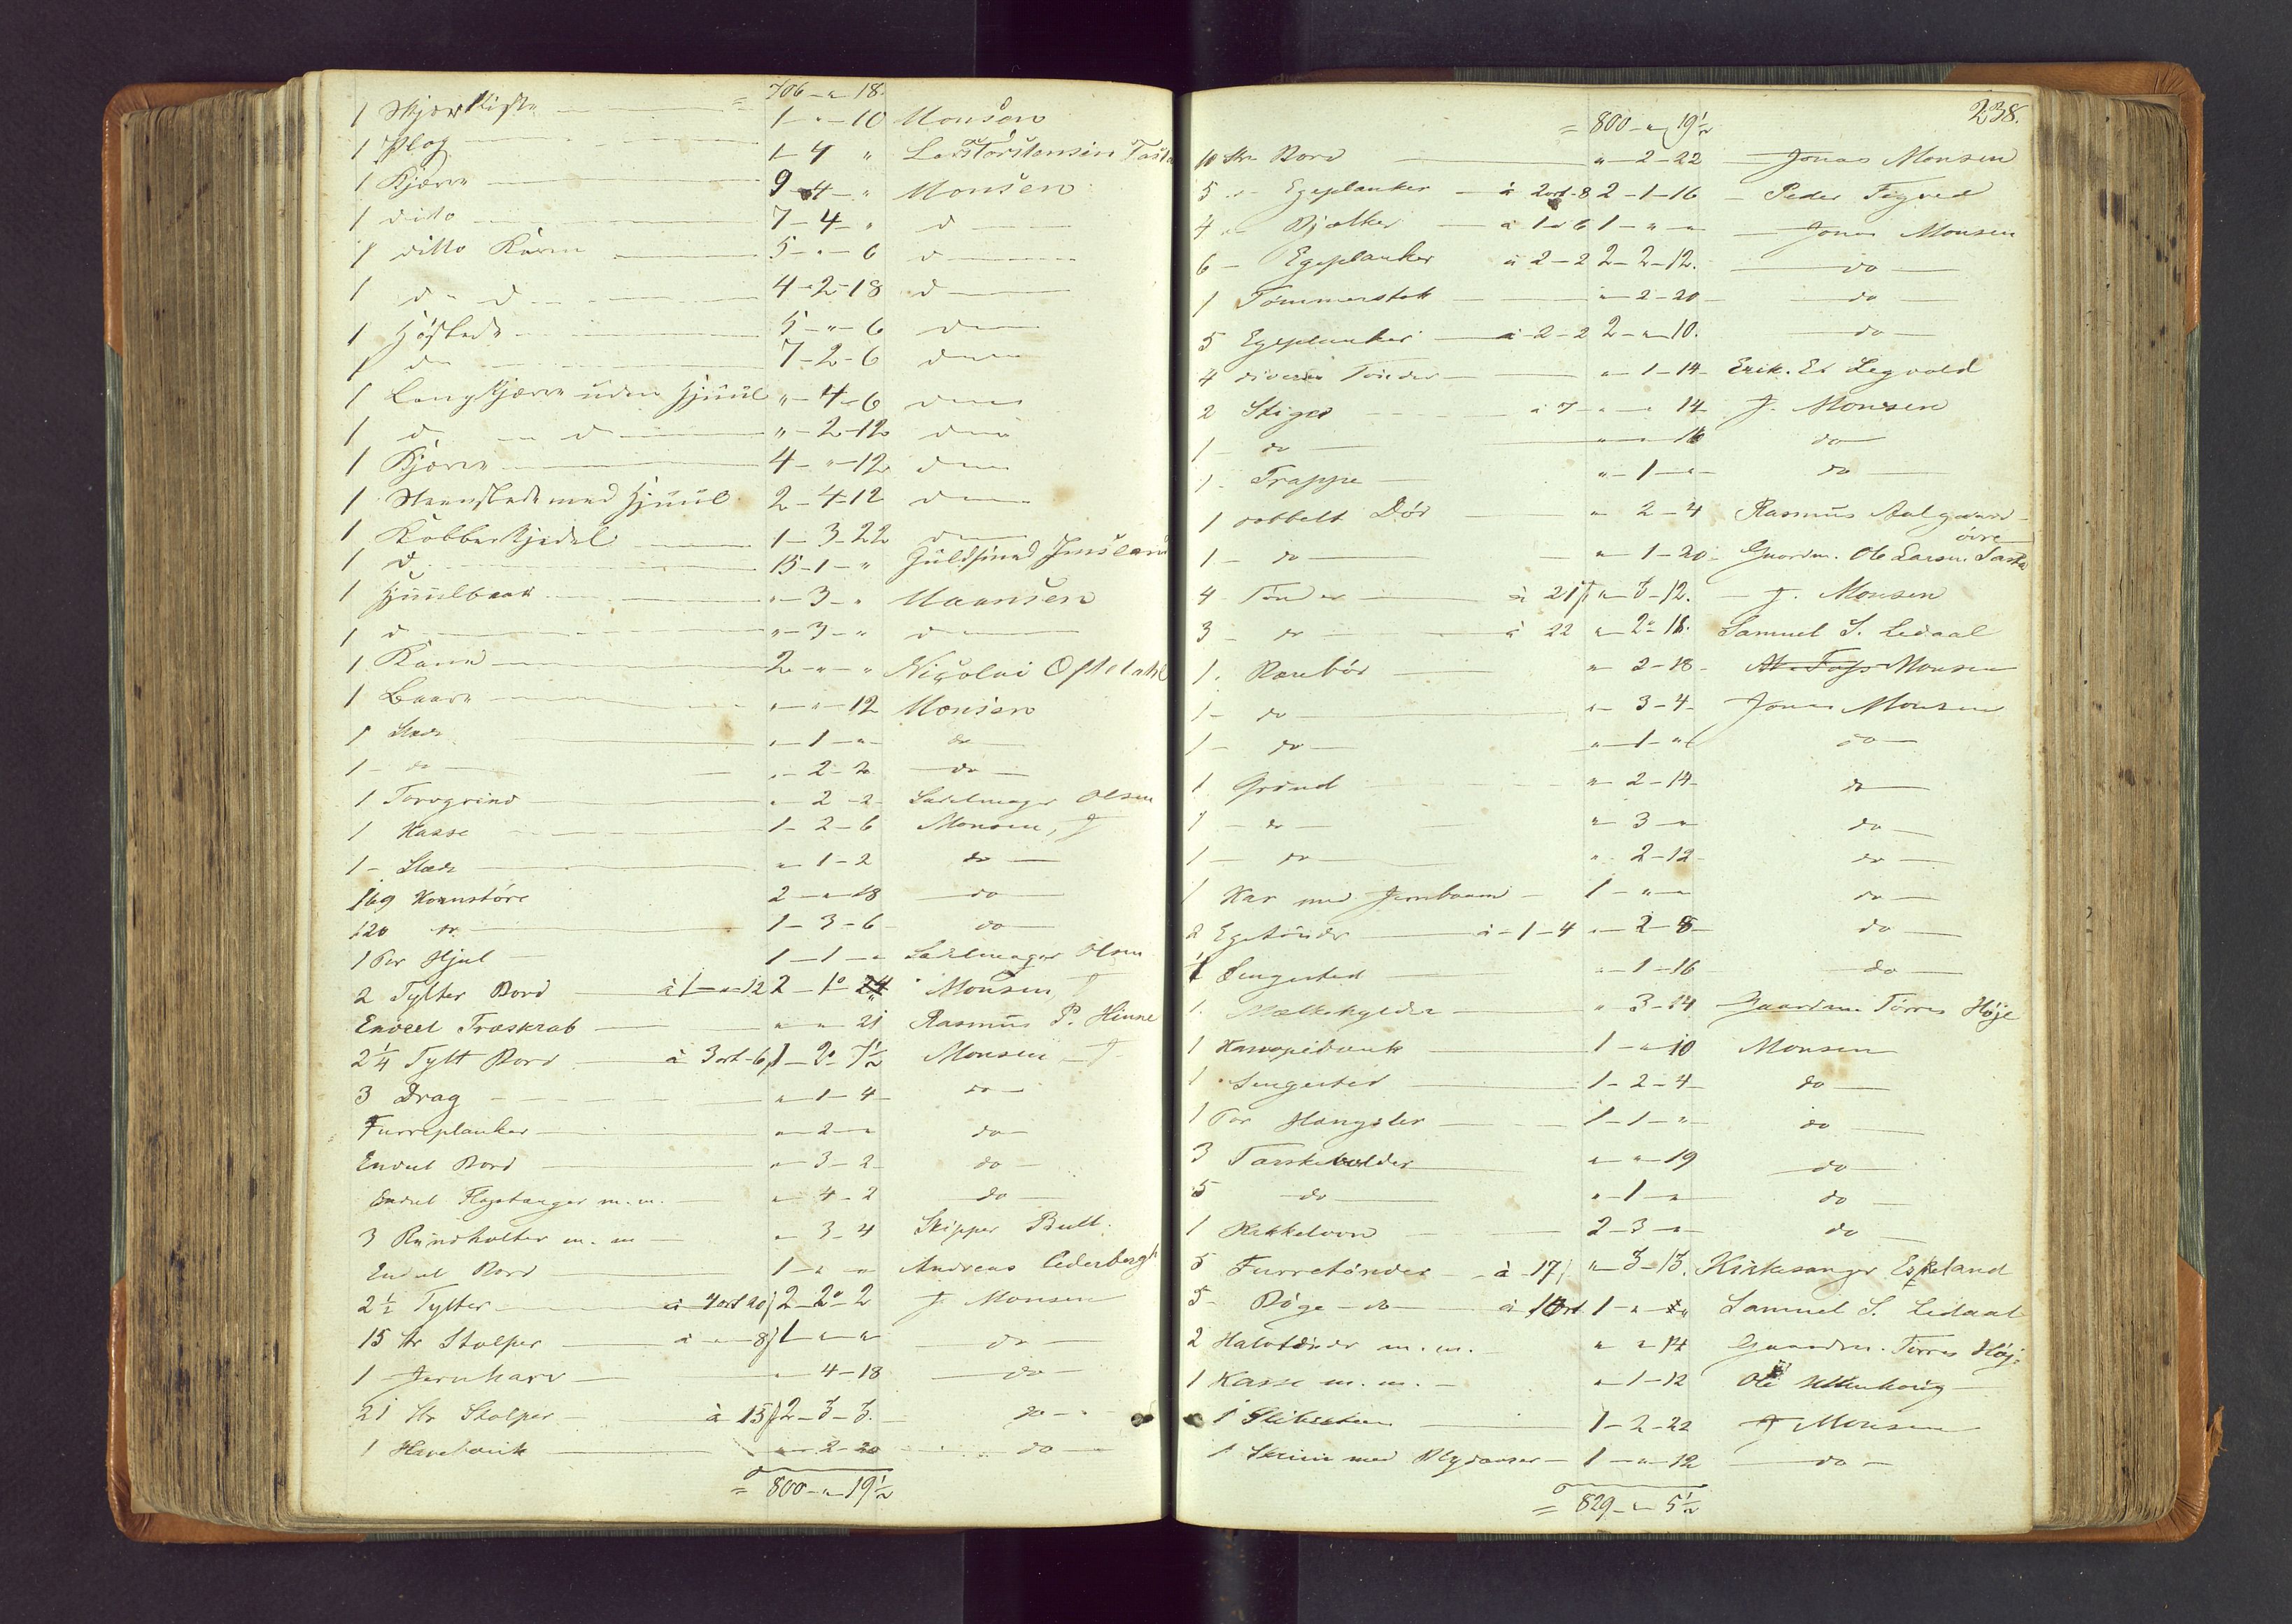 = 706 - " - 18.
1 Skjærkiste 1 - " - 10 Monsen
1 Plog 1 - 4 " Torstensen Tasta
1 Kjærre 9 - 4 - " Monsen
1 ditto 7 - 4 - " d
1 ditto 5 - " - 6 d
1 d - d 4 - 2 - 18 d
1 Høslede 5 - " - 6 d
1 do 7 - 2 - 6 d
1 Langkjærre uden Hjuul " - 4 - 6 d
1 d - d " - 2 - 12 d
1 Kjærre 4 - " - 12 d
1 Steenslede med Hjuul 2 - 4 - 12 d
1 Kobberkjedel 1 - 3 - 22 d
1 d 15 - 1 - " Guldsmed Jmsland
1 Hjuulbaar " - 3 - " Maansen
1 d " - 3 - " d
1 Kane 2 - " - " Nicolai Oftedahl
1 Baare " - " - 12 Monsen
1 Slæde " - 1 - " do
1 - do " - 2 - 2 do
1 Torvgrind " - 2 - 2 Sadelmager Olsen
1 Kasse 1 - 2 - 6 Monsen, J
1 - Slæde " - 1 - 2 do
169 Kornstøre 2 - " - 18 do
120 do 1 - 3 - 6 do
1 Par Hjul 1 - 1 - " Sadelmager Olsen
2 Tylter Bord à 1 - " - 12 2 - 1 - " Monsen, J
Endeel Træskrab " - " 21 Rasmus P. Hinne
2 1/4 Tylt Bord à 3 ort - 6 1 - 2 - 7 1/2 Monsen - J
3 Drag " - 1 - 4 do
Furreplanker " - 2 - " do
Endeel Bord " - 3 - 2 do
Endeel Flagstanger m.m. " - 4 - 2 do
3 Rundholter m.m " - 3 - 4 Skipper Bull.
Endeel Bord 1 - " - " Andreas Cederbergh
2 1/2 Tylter à 4 ort 20 2 - 2 - 2 J. Monsen
15 Str Stolper à " - 8 1 - " - " do
1 - Jernharv " - 4 - 18 do
21 Str Stolper à 15 2 - 3 - 3. do
1 Havebænk " - 2 - 20 do
= 800 - " - 19 1/2
238.
= 800 - " - 19 1/2
10 Str Bord " - 2 - 22 Jonas Monsen
5 - " - Egeplanker à 2 ort - 8 2 - 1 - 16 Peder Figved
4 " Bjælker à 1 - " 6 1 - " - " Jonas Monsen
6 - Egeplanker à 2 - 2 2 - 2 - 12. do
1 Tømmerstok " - 2 - 20 do
5 Egeplanker à 2 - 2 2 - " - 10. do
4 diverse Tønder " - 1 - 14 Erik. El Legvold
2 Stiger à 7 " - " 14 J. Monsen
1 - do " - " - 16 do
1 - Trappe " - 1 - " do
1 dobbelt Dør " 2 - 4 Rasmus Aalgaard
1 - do " - 1 - 20 Gaardm. Ole Larsen øvre Tasta
4 - Tønder à 21 " - 3 - 12. J. Monsen
3 - do à 22 " - 2 - 18. Samuel S. Ledaal
1. Rørebør " 2 - 18 Monsen
1 - do " 3 - 4 Jonas Monsen
1 - do " - 1 - " do
1 Grind " 2 - 14 do
1 - do " 3 - " do
1 - do " 2 - 12 do
1 Kar med Jernbaand 1 - " - " do
2 Egetønder à - 1 - 4 " - 2 - 8 do
1 Sengested " - 1 - 16 do
1. Melkehylder " 3 - 14 Gaardm Tørres Høje
1 Kanapebænk 1 - " 10 Monsen
1 Sengested 1 - 2 - 4 do
1 Par Hængsler 1 - 1 - " do
3 Tørskeholder " - " - 19 do
5 do " - 1 - " do
1 Kakkelovn 2 - 3 - " do
5 Furretønder à 17 " - 3 - 13. Kirkesanger Eskeland
5 - Bøge - do à 1 ort 1 - " - " Samuel S. Ledaal
2 Halvtønder m.m. " " 14 Gaardm. Tørres Høj-
1 Kasse m.m. " - 1 - 12 Ole
1 Slibesteen 1 - 2 - 22 J Monsen
1 Skrin med 1 - " - 12 do
= 829 - " - 5 1/2